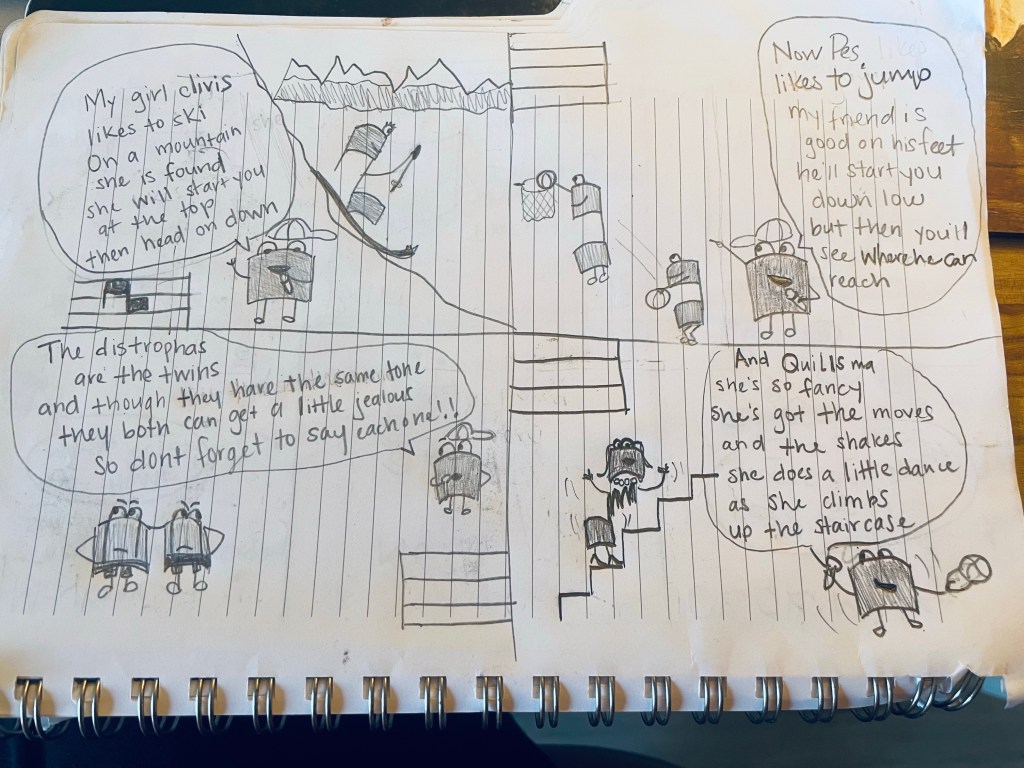 My girl clivis
likes to ski
On a mountain
she is found
she will start you
at the top
then head on down
Now Pes
likes to jump
my friend is
good on his feet
he'll start you
down low
but then you'll
see where he can
reach
The distrophas
are the twins
and though they have the same tone
they both can get a little jealous
so dont forget to say each one!!
And Quilisma
she's so fancy
she's got the moves
and the shakes
she does a little dance
as she climbs
up the staircase